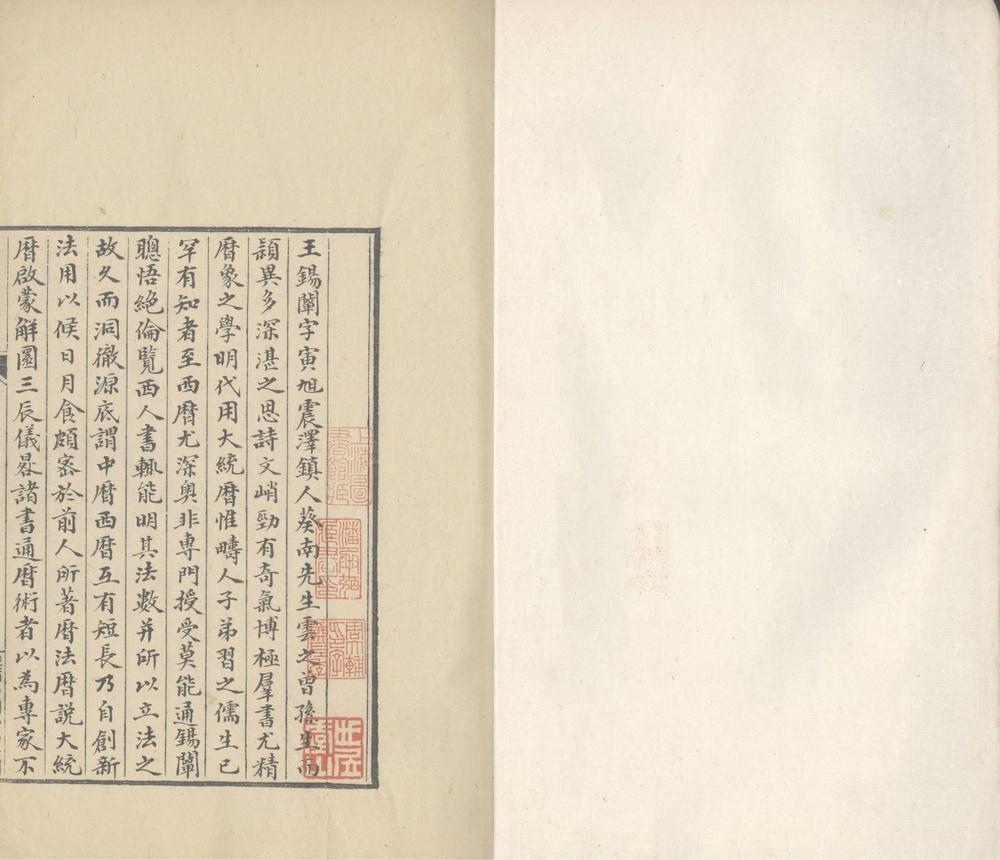 王錫闡字寅旭震澤鎮人葵南先生雲之曾孫生而
穎異多深湛之思詩文峭勁有奇氣博極羣書尤精
曆象之學明代用大統曆惟疇人子弟習之儒生已
罕有知者至西曆尤深奥非專門授受莫能通錫闡
聰悟絶倫覽西人書輒能明其法數并所以立法之
故久而洞徹源底謂中曆西曆互有短長乃自創新
法用以候日月食頗密於前人所著曆法曆説大統
曆啟蒙解圜三辰儀晷諸書通曆術者以為專家不
上海圖書館藏